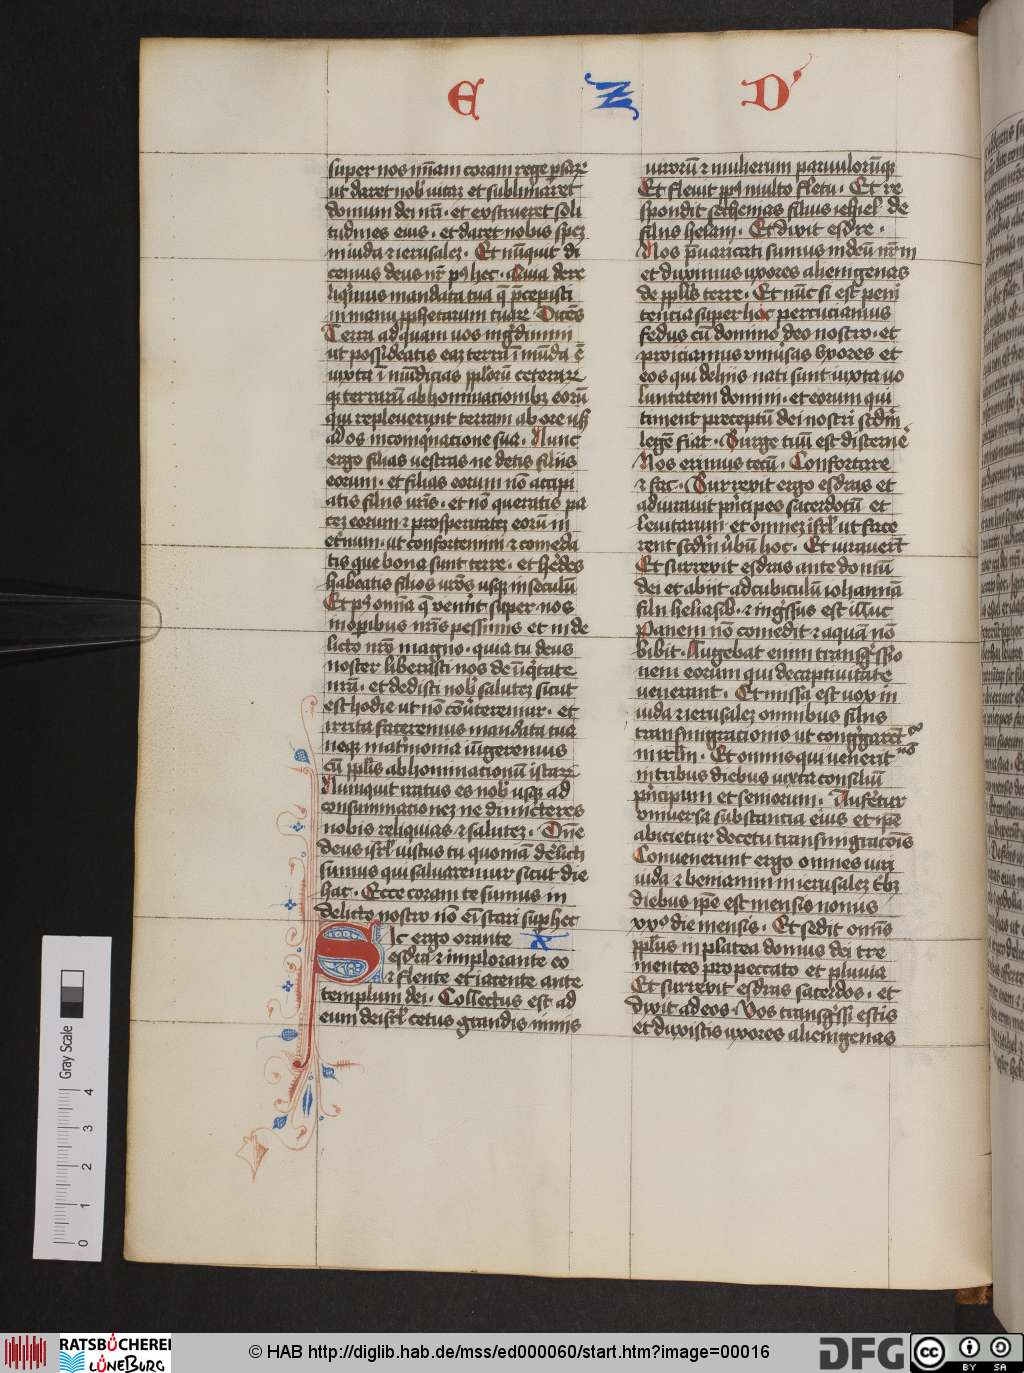 E Z D
super nos mīam coram rege psarꝝ
ut daret nob vitaz et sublimaret
domum dei nri · et exstrueret soli
tudines eius · et daret nobis spez
in iuda ⁊ ierusalez · Et nūquit di
cemus deus nr̄ pꝰ hec · Quia dere
liqimus mandata tua q̄ p̄cepisti
in manu pphetarum tuarꝝ Dicēs
Terra ad quam vos ingdimini
ut possideatis eaz terra īmūda ē
iuxta īmūdicias pplorū ceterarꝝ
qꝫ terrarū abhominacionibꝫ eorū
qui repleuerunt terram ab ore usqꝫ
ad os in coinqnacione sua · Nunc
ergo filias vestras ne detis filiis
eorum · et filias eorum nō accipi
atis filiis vris · et nō queratis pa
cez eorum ⁊ prosperitatez eorū in
et̄num · ut confortemini ⁊ comeda
tis que bona sunt terre · et hedes
habeatis filios vros usqꝫ in seculū
Et pꝰ omnia q̄ venint super nos
in opibus nris pessimis et in de
licto nro magno · quia tu deus
noster liberasti nos de iniqtate
nrā · et dedisti nob salutez sicut
est hodie ut nō conūteremur · et
irrita faceremus mandata tua
neqꝫ matimonia iūgeremus
cū pplis abhominacionū istarꝝ
Nunquit iratus es nob usqꝫ ad
consummacionez ne dimitteres
nobis reliquias ⁊ salutez · Dn̄e
deus isrl iustus tu quoniā delicti
sumus qui saluaremur sicut die
hac · Ecce coram te sumus in
delicto nostro nō ei stari sup hec
Sic ergo orante X
esdra ⁊ implorante eo
⁊ flente et iacente ante
templum dei · Collectus est ad
eum de isrl cetus grandis nimis
virorū ⁊ mulierum paruulorūqꝫ
Et fleuit ppls multo fletu · Et re
spondit sechenias filius iehiel de
filiis helam · Et dixit esdre ·
Nos p̄uaricati sumus in deū nr̄m
et duximus uxores alienigenas
de pplis terre · Et nūc si est peni
tencia super hoc percuciamus
fedus cū domino deo nostro · et
proiciamus vniūsas vxores et
eos qui de hiis nati sunt iuxta vo
luntatem domini · et eorum qui
timent preceptū dei nostri scdm
legē fiat · Surge tuū est discernē
Nos erimus tecū · Confortare
⁊ fac · Surrexit ergo esdras et
adiurauit pncipes sacerdotū et
leuitarum et omnez isrl ut face
rent scdm ūbū hoc · Et iurauert
Et surrexit esdras ante domū
dei et abiit ad cubiculū iohannā
filii heliasib · ⁊ ingssus est illuc
Panem nō comedit ⁊ aquā nō
bibit · Lugebat enim transgssio
nem eorum qui de captiuitate
venerant · Et missa est vox in
iuda ⁊ ierusalez omnibus filiis
transmigracionis ut congregarent
in irlm · Et omnis qui non venerit
in tribus diebus iuxta consiliū
pncipum et seniorum · Auferetur
vniuersa substancia eius et ipse
abicietur de cetu transmigracōis
Conuenerunt ergo omnes viri
iuda ⁊ beniamin in ierusalez tribꝫ
diebus ipse est mensis nonus
xxº die mensis · Et sedit omīs
pplus in platea domus dei tre
mentes pro peccato et pluuia
Et surrexit esdras sacerdos · et
dixit ad eos · Vos transgssi estis
et duxistis uxores alienigenas
Gray Scale
0 1 2 3 4
RATSBÜCHEREI
LÜNEBURG
© HAB http://diglib.hab.de/mss/ed000060/start.htm?image=00016
DFG
cc BY SA